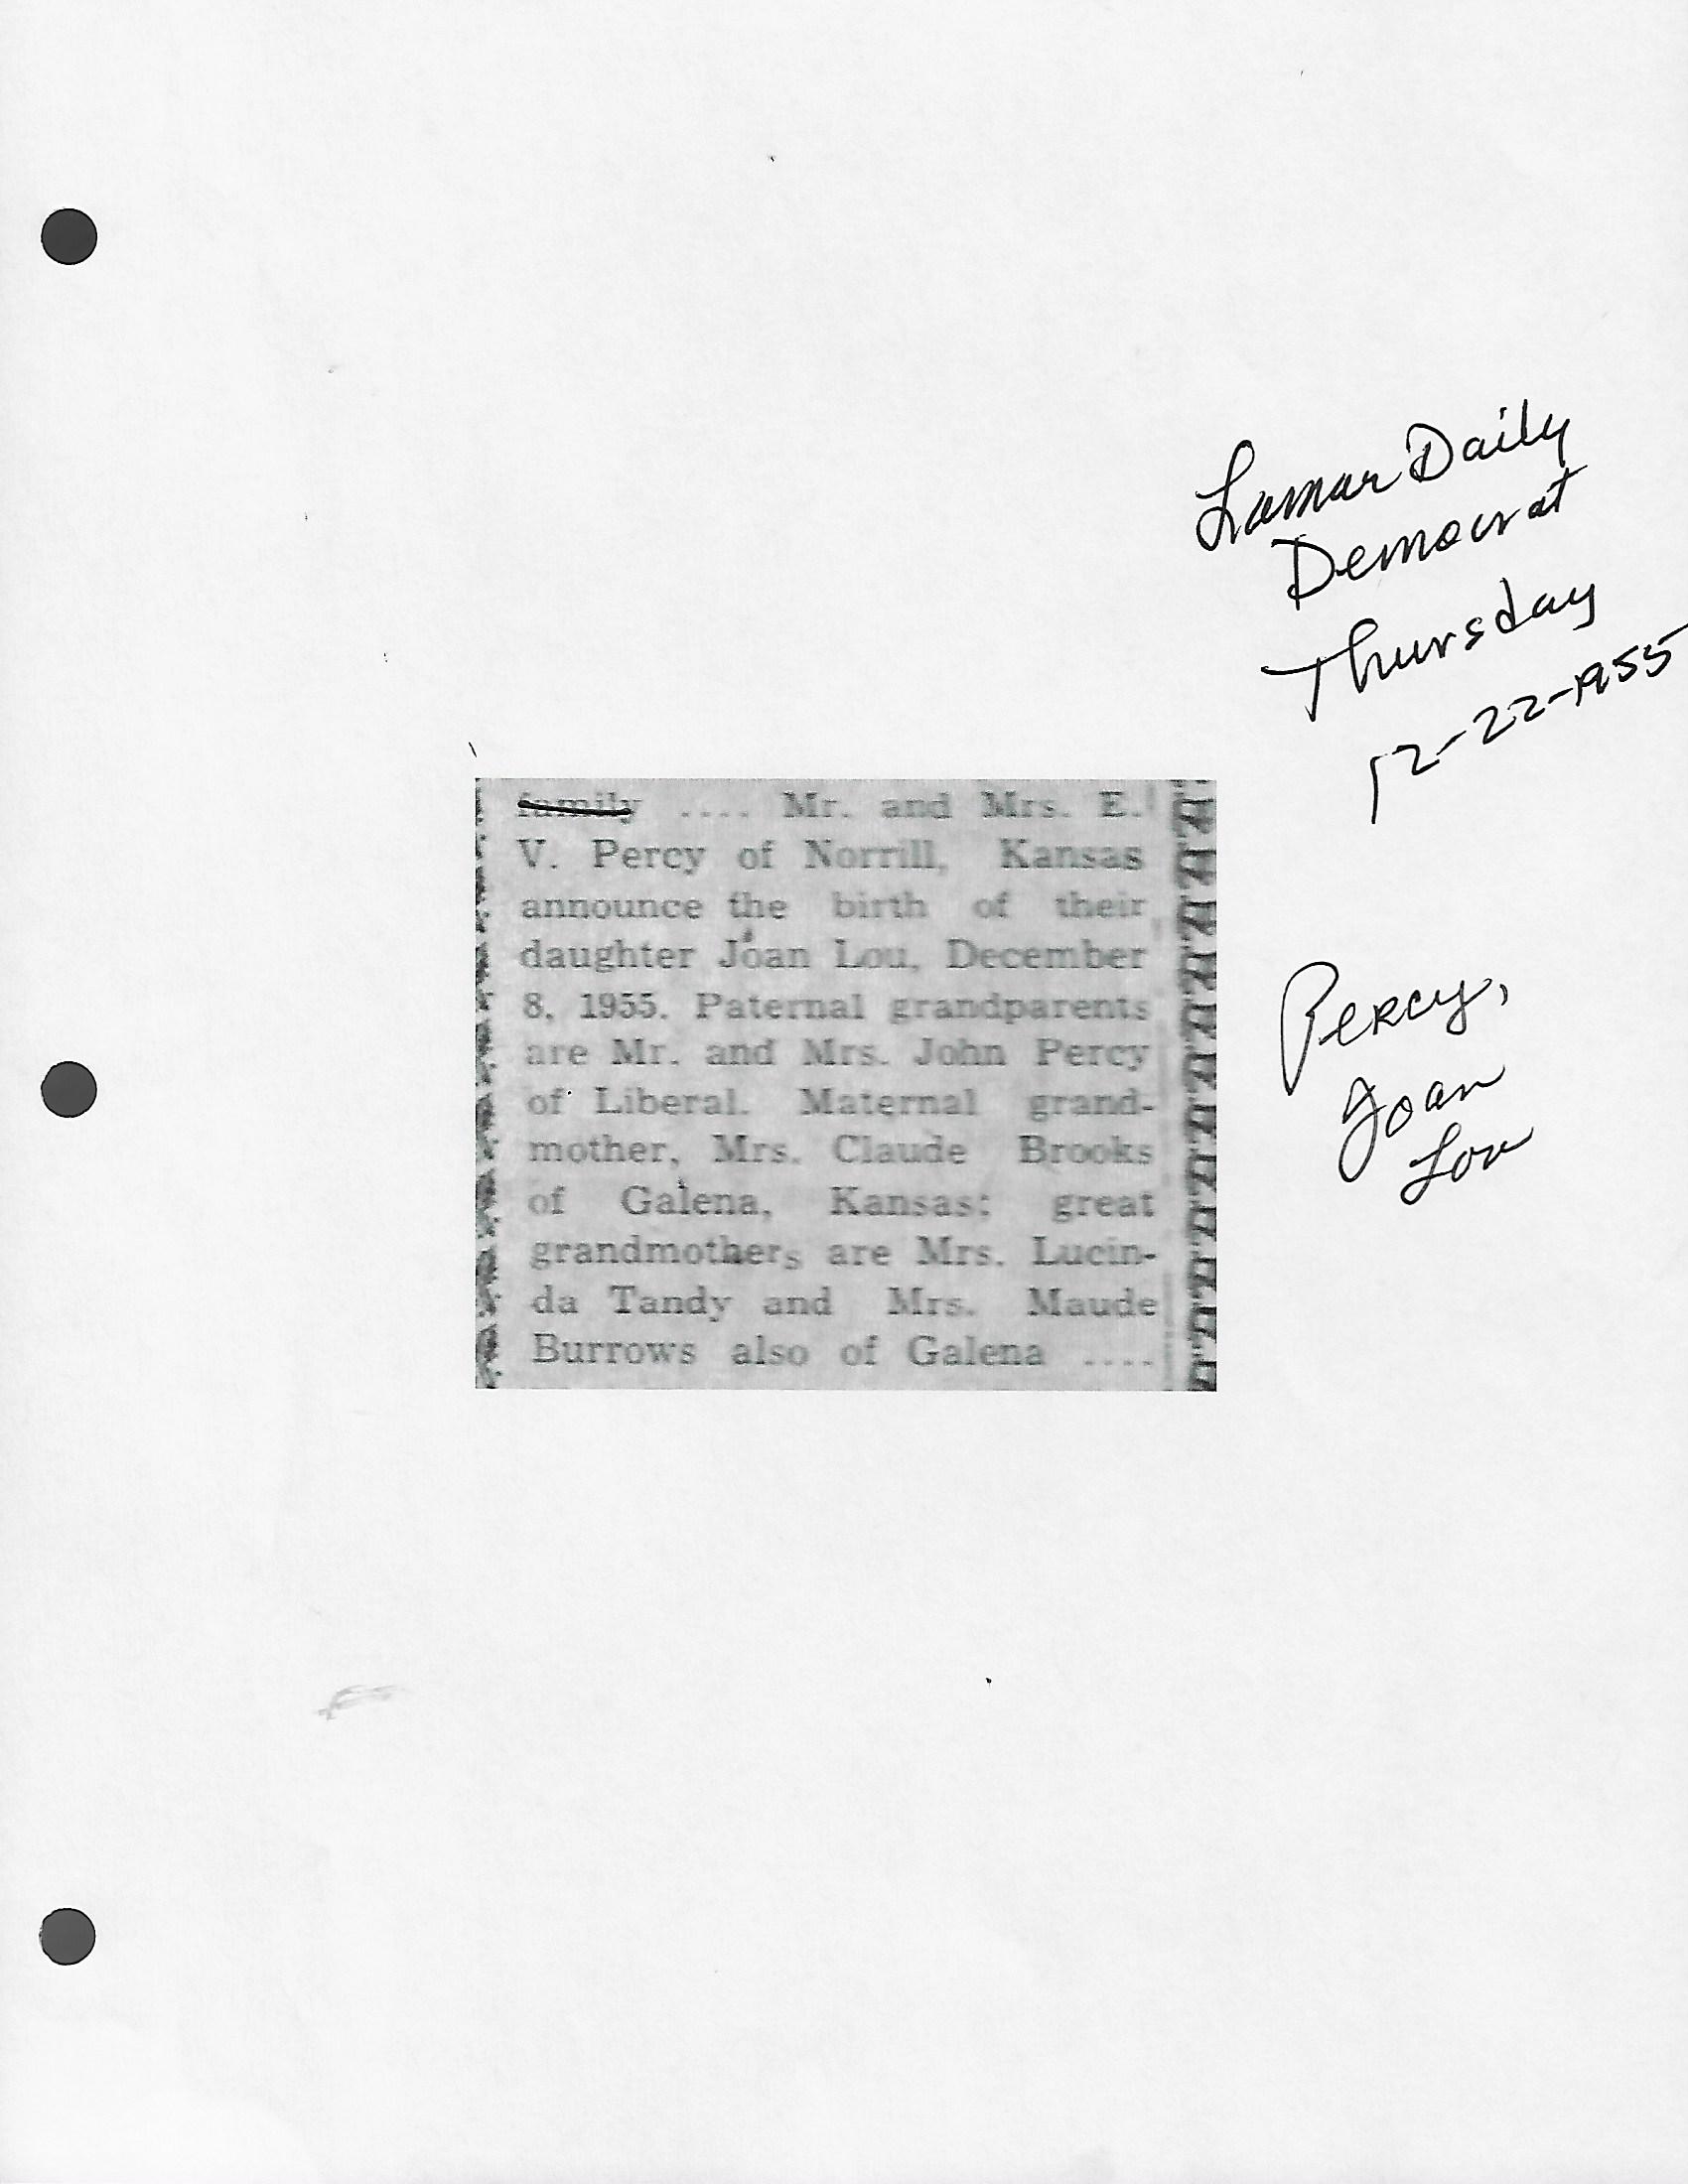 Lamar Daily
Democrat
Thursday
12-22-1955
family .... Mr. and Mrs. E.
V. Percy of Norrill, Kansas
announce the birth of their
daughter Joan Lou, December
8, 1955. Paternal grandparents
are Mr. and Mrs. John Percy
of Liberal. Maternal grand-
mother, Mrs. Claude Brooks
of Galena, Kansas; great
grandmothers are Mrs. Lucin-
da Tandy and Mrs. Maude
Burrows also of Galena ....
Percy,
Joan
Lou